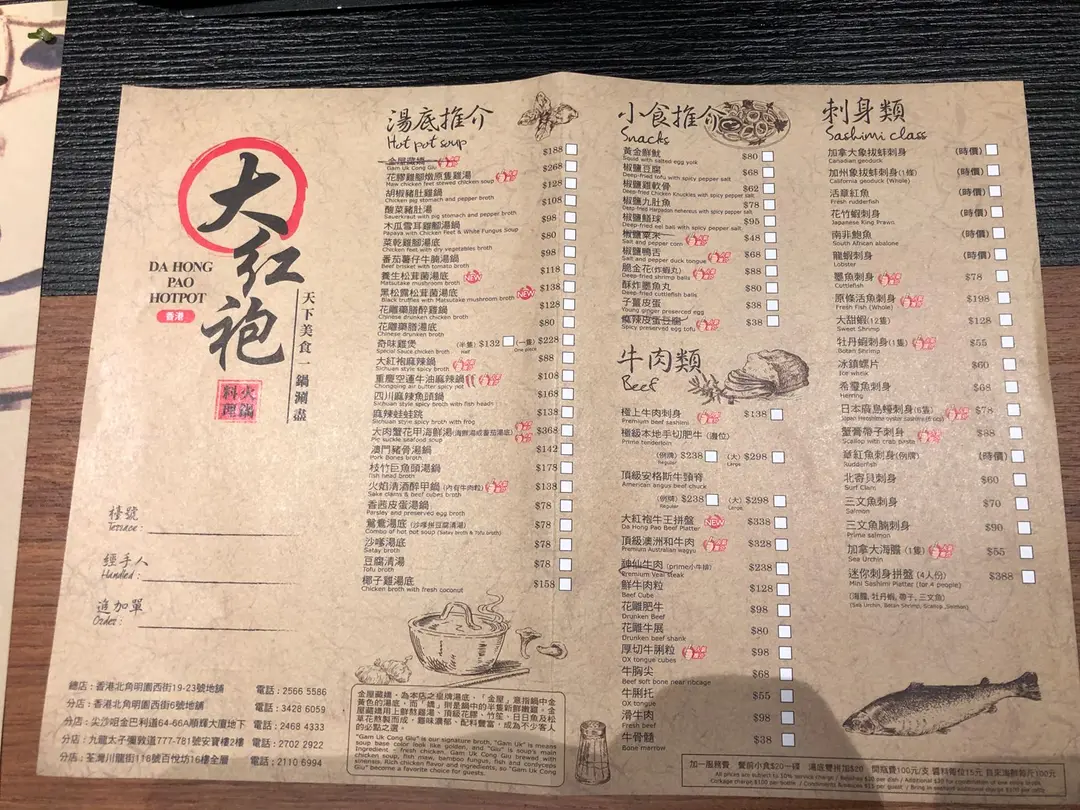 大紅袍
DA HONG
PAO
HOTPOT
香港
天下美食一鍋涮盡
火鍋
料理
檯號
經手人
Handled :
追加單
Order :
總店 : 香港北角明園西街19-23號地舖 電話 : 2566 5586
分店 : 香港北角明園西街6號地舖 電話 : 3428 6059
分店 : 尖沙咀金巴利道64-66A順輝大廈地下 電話 : 2468 4333
分店 : 九龍太子彌敦道777-781號安寶樓2樓 電話 : 2702 2922
分店 : 荃灣川龍街118號百悅坊16樓全層 電話 : 2110 6994
湯底推介
Hot pot soup
金屋藏嬌 $188
Gam Uk Cong Giu
花膠雞腳燉原隻雞湯 $268
Maw chicken feet stewed chicken soup
胡椒豬肚雞鍋 $128
Chicken pig stomach and pepper broth
酸菜豬肚湯 $108
Sauerkraut with pig stomach and pepper broth
木瓜雪耳雞腳湯鍋 $98
Papaya with Chicken Feet & White Fungus Soup
菜乾雞腳湯底 $80
Chicken feet with dry vegetables broth
番茄薯仔牛腩湯鍋 $98
Beef brisket with tomato broth
養生松茸菌湯底 NEW $118
Matsutake mushroom broth
黑松露松茸菌湯底 NEW $138
Black truffles with Matsutake mushroom broth
花雕藥膳醉雞鍋 $128
Chinese drunken chicken broth
花雕藥膳湯底 $80
Chinese drunken broth
奇味雞煲 (半隻) $132 (一隻) $228
Special Sauce chicken Broth Half One piece
大紅袍麻辣鍋 $88
Sichuan style spicy broth
重慶空運牛油麻辣鍋 $108
Chongqing air butter spicy pot
四川麻辣魚頭鍋 $168
Sichuan style spicy broth with fish head
麻辣蛙蛙跳 $138
Sichuan style spicy broth with frog
大肉蟹花甲海鮮湯 (海鮮湯或番茄湯底) $368
Pic suckle seafood soup
澳門豬骨湯鍋 $142
Pork Bones broth
枝竹巨魚頭湯鍋 $178
fish head broth
火焰清酒醉甲鍋 (內有牛肉粒) $138
Sake clams & beef cubes broth
香茜皮蛋湯鍋 $78
Parsley and preserved egg broth
鴛鴦湯底 (沙嗲拼豆腐清湯) $78
Combo of hot pot soup (Satay broth & Tofu broth)
沙嗲湯底 $78
Satay broth
豆腐清湯 $78
Tofu broth
椰子雞湯底 $158
Chicken broth with fresh coconut
金屋藏嬌,為本店之皇牌湯底,「金屋」意指鍋中金黃色的湯底,而「嬌」則是鍋中的半隻新鮮嫩雞。金屋藏嬌用上鮮熬雞湯、頂級花膠、竹笙、日日魚及松草花熬製而成,雞味濃郁、配料豐富,成為不少客人的必點之選。
"Gam Uk Cong Giu" is our signature broth. "Gam Uk" is means soup base color look like golden, and "Giu" is soup's main Ingredient - fresh chicken. Gam Uk Cong Giu brewed with chicken soup, fish maw, bamboo fungus, fish and cordyceps sinensis. Rich chicken flavor and ingredients, so "Gam Uk Cong Giu" become a favorite choice for guests.
小食推介
Snacks
黃金鮮魷 $80
Squid with salted egg yolk
椒鹽豆腐 $68
Deep-fried tofu with spicy pepper salt
椒鹽雞軟骨 $62
Deep-fried Chicken Knuckles with spicy pepper salt
椒鹽九肚魚 $78
Deep-fried Harpadon nehereus with spicy pepper salt
椒鹽鱔球 $95
Deep-fried eel bab with spicy pepper salt
椒鹽粟米 $48
Salt and pepper corn
椒鹽鴨舌 $68
Salt and pepper duck tongue
脆金花(炸蝦丸) $88
Deep-fried shrimp balls
酥炸墨魚丸 $80
Deep-fried cuttlefish balls
子薑皮蛋 $38
Young ginger preserved egg
麻辣皮蛋豆腐 $38
Spicy preserved egg tofu
牛肉類
Beef
極上牛肉刺身 $138
Premium beef sashimi
極級本地手切肥牛 (邊位)
Prime tenderloin
(例牌) $238 (大) $298
Regular Large
頂級安格斯牛頸脊
American angus beef chuck
(例牌) $238 (大) $298
Regular Large
大紅袍牛王拼盤 NEW $338
Da Hong Pao Beef Platter
頂級澳洲和牛肉 $328
Premium Australian wagyu
神仙牛肉 (prime小牛排) $238
Premium Veal steak
鮮牛肉粒 $128
Beef Cube
花雕肥牛 $98
Drunken Beef
花雕牛展 $80
Drunken beef shank
厚切牛脷粒 $98
OX tongue cubes
牛胸尖 $68
Beef soft bone near ribcage
牛脷托 $55
OX tongue
滑牛肉 $98
fresh beef
牛骨髓 $38
Bone marrow
刺身類
Sashimi class
加拿大象拔蚌刺身 (時價)
Canadian geoduck
加州象拔蚌刺身(1條) (時價)
California geoduck (Whole)
活章紅魚 (時價)
Fresh rudderfish
花竹蝦刺身 (時價)
Japanese King Prawn
南非鮑魚 (時價)
South African abalone
龍蝦刺身 (時價)
Lobster
墨魚刺身 $78
Cuttlefish
原條活魚刺身 $198
Fresh Fish (Whole)
大甜蝦(12隻) $128
Sweet Shrimp
牡丹蝦刺身(1隻) $55
Botan Shrimp
冰鎮螺片 $60
Ice whelk
希靈魚刺身 $68
Herring
日本廣島蠔刺身(6隻) $78
Japan Hiroshima oyster sashimi
蟹膏帶子刺身 $88
Scallop with crab paste
章紅魚刺身(例牌) (時價)
Rudderfish
北寄貝刺身 $60
Surf Clam
三文魚刺身 $70
Salmon
三文魚腩刺身 $90
Prime salmon
加拿大海膽 (1隻) $55
Sea Urchin
迷你刺身拼盤 (4人份) $388
Mini Sashimi Platter (for 4 people)
(海膽, 牡丹蝦, 帶子, 三文魚)
(Sea Urchin, Botan Shrimp, Scallop, Salmon)
加一服務費 餐前小食$20一碟 湯底雙拼加$20 開瓶費100元/支 醬料每位15元 自來海鮮每斤100元